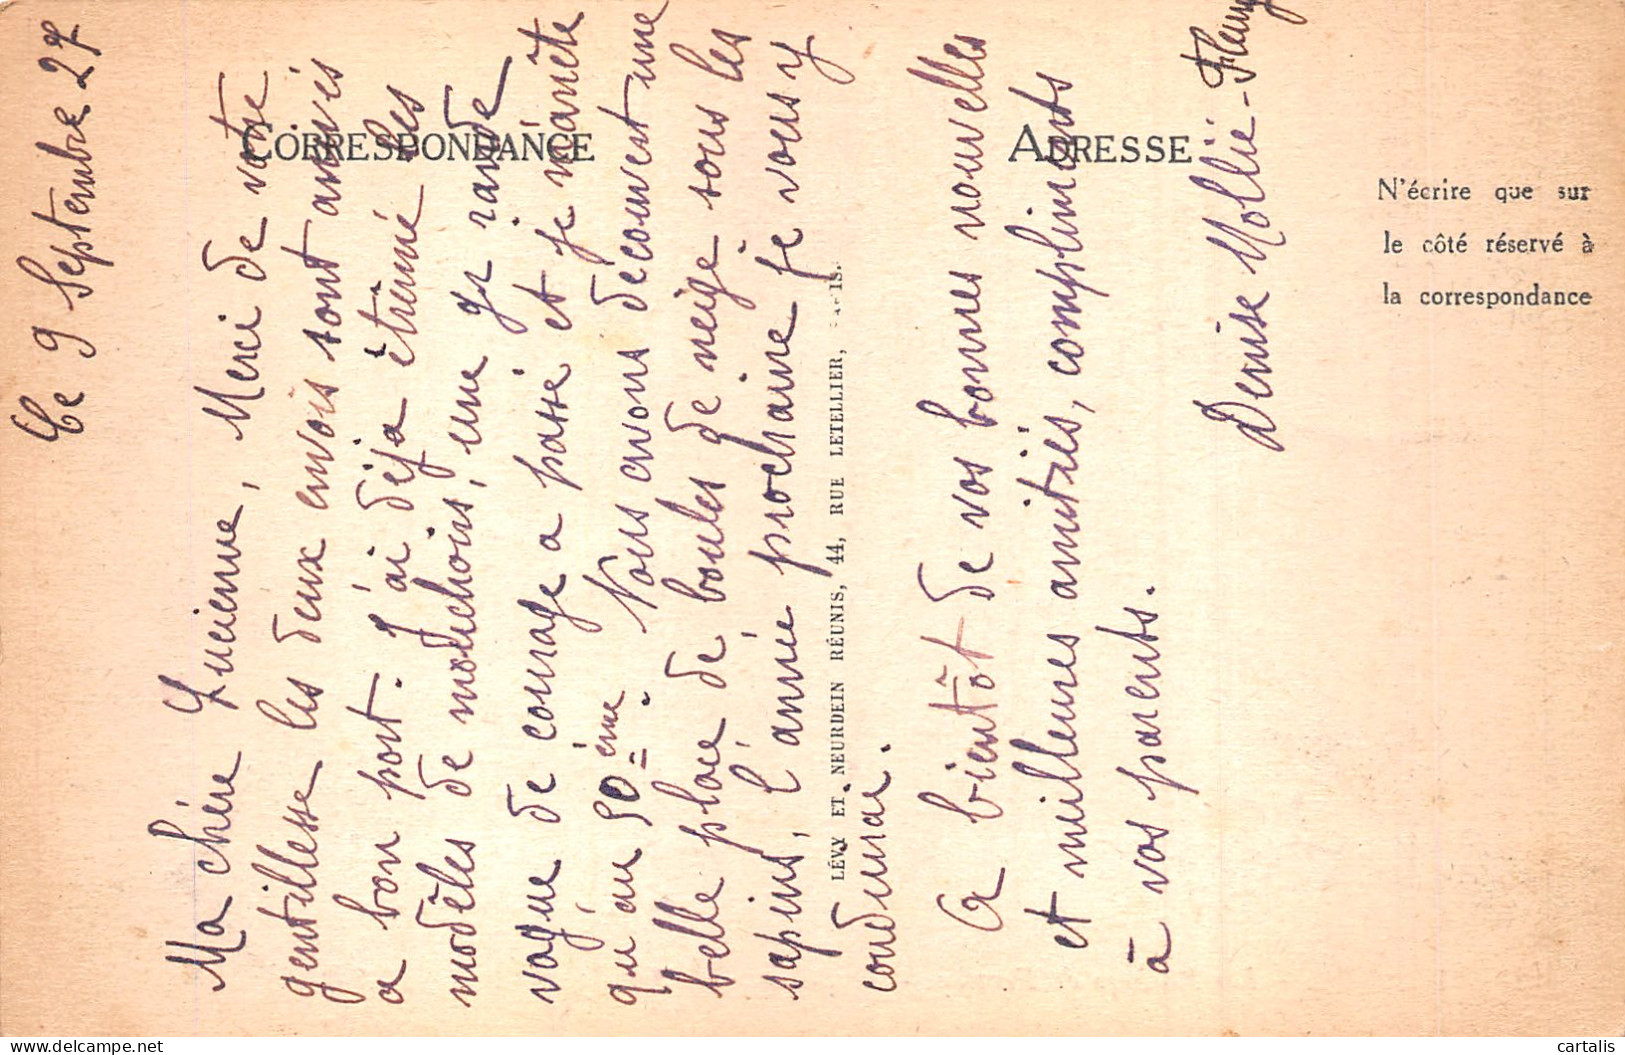 Le 9 Septembre 27
Ma chère Lucienne, Merci de votre
gentillesse les deux envois sont arrivés
a bon port. J'ai déja étrenné les
modèles de mouchoirs, une gr rande
vague de courage a passé et je m'arrête
qu'au 50ème. Nous avons découvert une
belle place de boules de neige sous les
sapins, l'année prochaine je vous y
conduirai.
A bientôt de vos bonnes nouvelles
et meilleures amitiés, compliments
à vos parents.
Denise Mollié-Fleury
CORRESPONDANCE
ADRESSE
N'écrire que sur
le côté réservé à
la correspondance
LÉVY ET NEURDEIN RÉUNIS, 44, RUE LETELLIER, PARIS.
cartalis